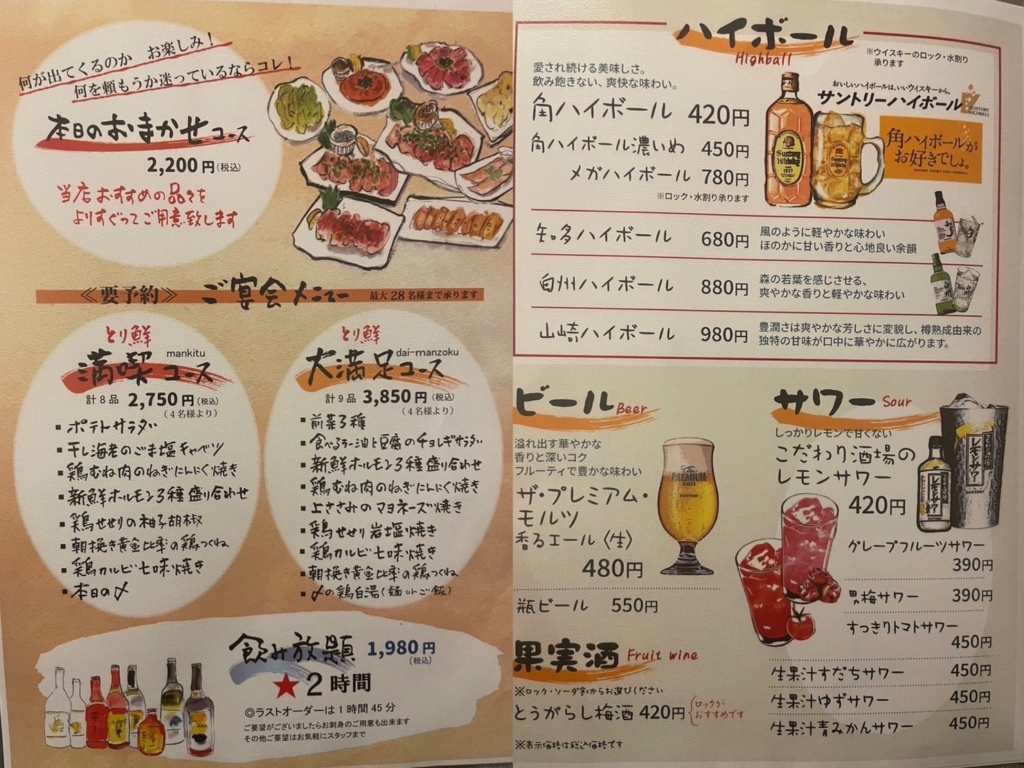 何が出てくるのか お楽しみ！
何を頼もうか迷っているならコレ！
本日のおまかせコース
2,200円(税込)
当店おすすめの品々を
よりすぐってご用意致します
≪要予約≫ ご宴会メニュー 最大28名様まで承ります
とり鮮
満喫コース
mankitu
計8品 2,750円(税込)
(4名様より)
ポテトサラダ
干し海老のごま塩キャベツ
鶏むね肉のねぎにんにく焼き
新鮮ホルモン3種盛り合わせ
鶏せせりの柚子胡椒
朝挽き黄金比率の鶏つくね
鶏カルビ七味焼き
本日の〆
とり鮮
大満足コース
dai-manzoku
計9品 3,850円(税込)
(4名様より)
前菜3種
食べるラー油と豆腐のチョレギサラダ
新鮮ホルモン3種盛り合わせ
鶏むね肉のねぎにんにく焼き
上ささみのマヨネーズ焼き
鶏せせり岩塩焼き
鶏カルビ七味焼き
朝挽き黄金比率の鶏つくね
〆の鶏白湯(麺orご飯)
飲み放題 1,980円
(税込)
★2時間
◎ラストオーダーは1時間45分
ご要望がございましたらお刺身のご用意も出来ます
その他ご要望はお気軽にスタッフまで
ハイボール
Highball
※ウイスキーのロック・水割り
承ります
愛され続ける美味しさ。
飲み飽きない、爽快な味わい。
角ハイボール 420円
角ハイボール濃いめ 450円
メガハイボール 780円
※ロック・水割り承ります
おいしいハイボールは、いいウイスキーから。
サントリーハイボール
SUNTORY
HIGHBALL
角ハイボールが
お好きでしょ。
Suntory
Whisky
知多ハイボール 680円
風のように軽やかな味わい
ほのかに甘い香りと心地良い余韻
白州ハイボール 880円
森の若葉を感じさせる、
爽やかな香りと軽やかな味わい
山崎ハイボール 980円
豊潤さは爽やかな芳しさに変貌し、樽熟成由来の
独特の甘味が口中に華やかに広がります。
ビール Beer
溢れ出す華やかな
香りと深いコク
フルーティで豊かな味わい
ザ・プレミアム・
モルツ
香るエール〈生〉
480円
The
PREMIUM
MALT'S
SUNTORY
瓶ビール 550円
果実酒 Fruit wine
※ロック・ソーダ割からお選びください
とうがらし梅酒 420円
ロックが
おすすめです
※表示価格は税込価格です
サワー Sour
しっかりレモンで甘くない
こだわり酒場の
レモンサワー
420円
レモンサワー
グレープフルーツサワー
390円
男梅サワー 390円
すっきりトマトサワー
450円
生果汁すだちサワー 450円
生果汁ゆずサワー 450円
生果汁青みかんサワー 450円